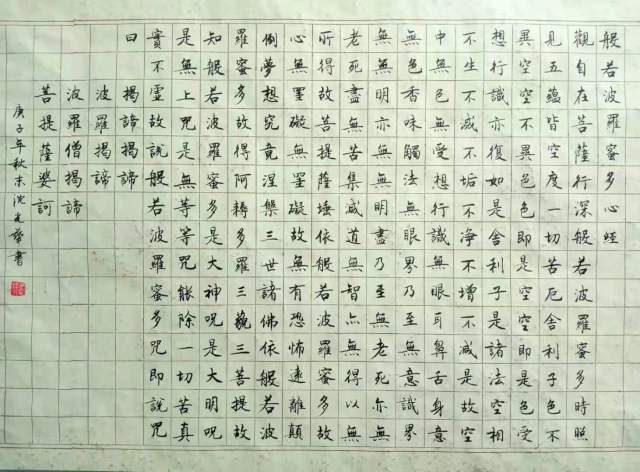 般若波羅蜜多心經
觀自在菩薩行深般若波羅蜜多時照
見五蘊皆空度一切苦厄舍利子色不
異空空不異色色即是空空即是色受
想行識亦復如是舍利子是諸法空相
不生不滅不垢不淨不增不減是故空
中無色無受想行識無眼耳鼻舌身意
無色香味觸法無眼界乃至無意識界
無無明亦無無明盡乃至無老死亦無
老死盡無苦集滅道無智亦無得以無
所得故菩提薩埵依般若波羅蜜多故
心無罣礙無罣礙故無有恐怖遠離顛
倒夢想究竟涅槃三世諸佛依般若波
羅蜜多故得阿耨多羅三藐三菩提故
知般若波羅蜜多是大神咒是大明呪
是無上咒是無等等咒能除一切苦真
實不虛故說般若波羅蜜多咒即說咒
曰揭諦揭諦
波羅揭諦
波羅僧揭諦
菩提薩婆訶
庚子年秋末沈